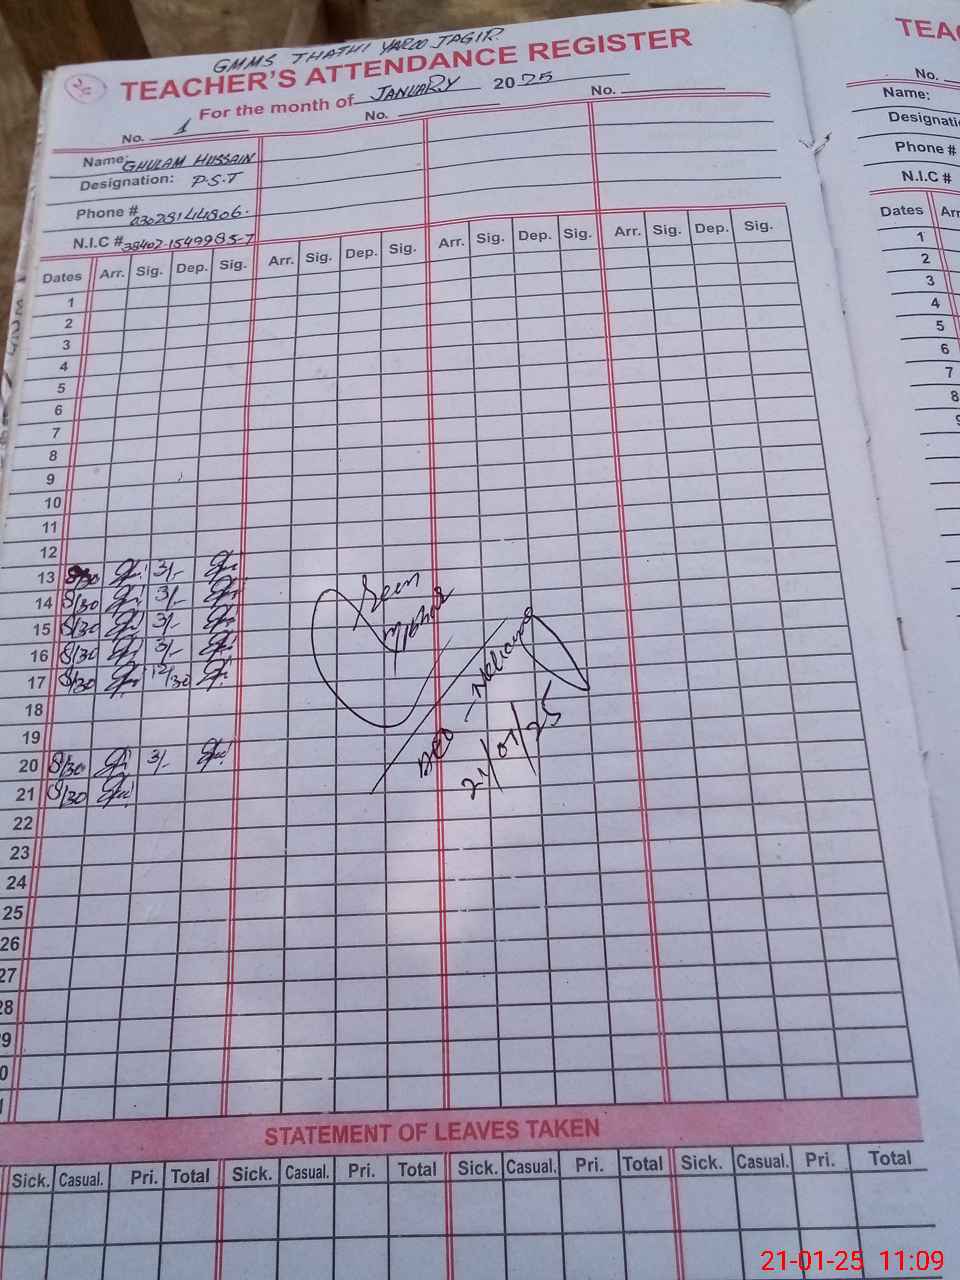 GMMS THATHI YAROO JAGIR
TEACHER'S ATTENDANCE REGISTER
For the month of JANUARY 2025
No. 1 No. No.
Name: GHULAM HUSSAIN
Designation: P.S.T
Phone # 03028144806.
N.I.C # 38407-1549985-7
Dates Arr. Sig. Dep. Sig. Arr. Sig. Dep. Sig. Arr. Sig. Dep. Sig. Arr. Sig. Dep. Sig.
1
2
3
4
5
6
7
8
9
10
11
12
13 8/30 3/-
14 8/30 3/-
15 8/30 3/-
16 8/30 3/-
17 8/30 12/30
18
19
20 8/30 3/-
21 8/30
22
23
24
25
26
27
28
29
0
1
Seen
21/01/25
STATEMENT OF LEAVES TAKEN
Sick. Casual. Pri. Total Sick. Casual. Pri. Total Sick. Casual. Pri. Total Sick. Casual. Pri. Total
TEA
No.
Name:
Designati
Phone #
N.I.C #
Dates Arr
1
2
3
4
5
6
7
8
9
21-01-25 11:09